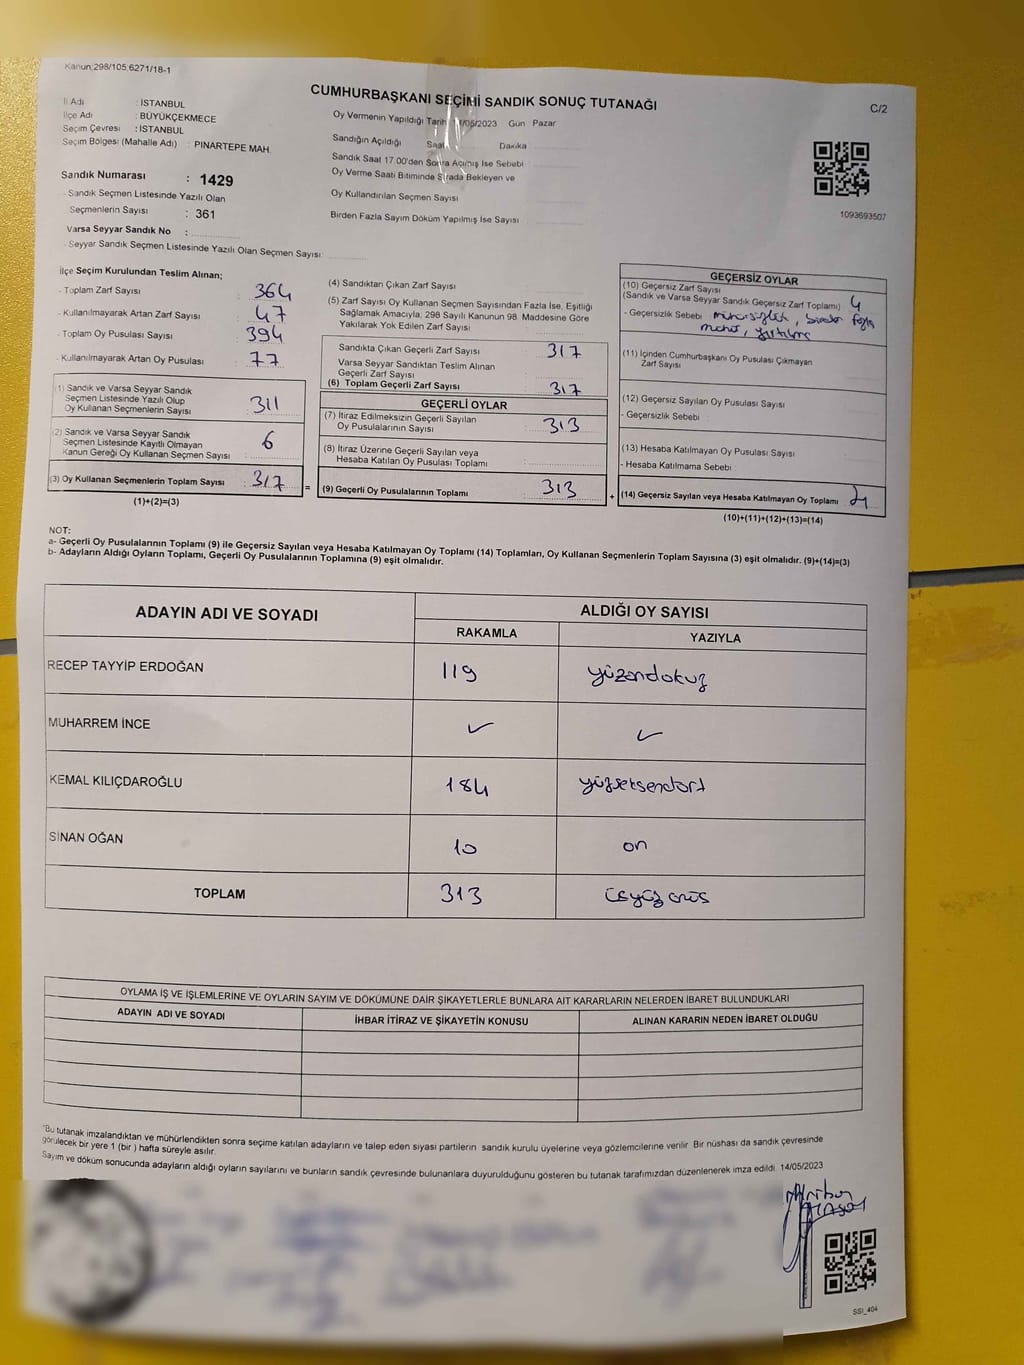 Kanun:298/105,6271/18-1
CUMHURBAŞKANI SEÇİMİ SANDIK SONUÇ TUTANAĞI
C/2
İl Adı : İSTANBUL
İlçe Adı : BÜYÜKÇEKMECE
Seçim Çevresi : İSTANBUL
Seçim Bölgesi (Mahalle Adı) : PINARTEPE MAH.
Sandık Numarası : 1429
- Sandık Seçmen Listesinde Yazılı Olan
Seçmenlerin Sayısı : 361
Varsa Seyyar Sandık No :
- Seyyar Sandık Seçmen Listesinde Yazılı Olan Seçmen Sayısı:
Oy Vermenin Yapıldığı Tarih 14/05/2023 Gün Pazar
Sandığın Açıldığı Saat Dakika
Sandık Saat 17.00'den Sonra Açılmış İse Sebebi
Oy Verme Saati Bitiminde Sırada Bekleyen ve
Oy Kullandırılan Seçmen Sayısı
Birden Fazla Sayım Döküm Yapılmış İse Sayısı
1093693507
İlçe Seçim Kurulundan Teslim Alınan;
- Toplam Zarf Sayısı : 364
- Kullanılmayarak Artan Zarf Sayısı : 47
- Toplam Oy Pusulası Sayısı : 394
- Kullanılmayarak Artan Oy Pusulası : 77
(1) Sandık ve Varsa Seyyar Sandık
Seçmen Listesinde Yazılı Olup
Oy Kullanan Seçmenlerin Sayısı : 311
(2) Sandık ve Varsa Seyyar Sandık
Seçmen Listesinde Kayıtlı Olmayan
Kanun Gereği Oy Kullanan Seçmen Sayısı : 6
(3) Oy Kullanan Seçmenlerin Toplam Sayısı : 317
(1)+(2)=(3)
=
(4) Sandıktan Çıkan Zarf Sayısı
(5) Zarf Sayısı Oy Kullanan Seçmen Sayısından Fazla İse, Eşitliği
Sağlamak Amacıyla; 298 Sayılı Kanunun 98. Maddesine Göre
Yakılarak Yok Edilen Zarf Sayısı
Sandıkta Çıkan Geçerli Zarf Sayısı : 317
Varsa Seyyar Sandıktan Teslim Alınan
Geçerli Zarf Sayısı
(6) Toplam Geçerli Zarf Sayısı : 317
GEÇERLİ OYLAR
(7) İtiraz Edilmeksizin Geçerli Sayılan
Oy Pusulalarının Sayısı : 313
(8) İtiraz Üzerine Geçerli Sayılan veya
Hesaba Katılan Oy Pusulası Toplamı :
(9) Geçerli Oy Pusulalarının Toplamı : 313
+
GEÇERSİZ OYLAR
(10) Geçersiz Zarf Sayısı
(Sandık ve Varsa Seyyar Sandık Geçersiz Zarf Toplamı) 4
- Geçersizlik Sebebi mühürsüzlük, birden fazla
mühür, yırtılma
(11) İçinden Cumhurbaşkanı Oy Pusulası Çıkmayan
Zarf Sayısı
(12) Geçersiz Sayılan Oy Pusulası Sayısı
- Geçersizlik Sebebi
(13) Hesaba Katılmayan Oy Pusulası Sayısı
- Hesaba Katılmama Sebebi
(14) Geçersiz Sayılan veya Hesaba Katılmayan Oy Toplamı 4
(10)+(11)+(12)+(13)=(14)
NOT:
a- Geçerli Oy Pusulalarının Toplamı (9) ile Geçersiz Sayılan veya Hesaba Katılmayan Oy Toplamı (14) Toplamları, Oy Kullanan Seçmenlerin Toplam Sayısına (3) eşit olmalıdır. (9)+(14)=(3)
b- Adayların Aldığı Oyların Toplamı, Geçerli Oy Pusulalarının Toplamına (9) eşit olmalıdır.
ADAYIN ADI VE SOYADI
ALDIĞI OY SAYISI
RAKAMLA YAZIYLA
RECEP TAYYİP ERDOĞAN 119 yüzondokuz
MUHARREM İNCE
KEMAL KILIÇDAROĞLU 184 yüzseksendört
SİNAN OĞAN 10 on
TOPLAM 313 üçyüzonüç
OYLAMA İŞ VE İŞLEMLERİNE VE OYLARIN SAYIM VE DÖKÜMÜNE DAİR ŞİKAYETLERLE BUNLARA AİT KARARLARIN NELERDEN İBARET BULUNDUKLARI
ADAYIN ADI VE SOYADI İHBAR İTİRAZ VE ŞİKAYETİN KONUSU ALINAN KARARIN NEDEN İBARET OLDUĞU
"Bu tutanak imzalandıktan ve mühürlendikten sonra seçime katılan adayların ve talep eden siyasi partilerin sandık kurulu üyelerine veya gözlemcilerine verilir. Bir nüshası da sandık çevresinde
görülecek bir yere 1 (bir) hafta süreyle asılır.
Sayım ve döküm sonucunda adayların aldığı oyların sayılarını ve bunların sandık çevresinde bulunanlara duyurulduğunu gösteren bu tutanak tarafımızdan düzenlenerek imza edildi. 14/05/2023
SSI_404